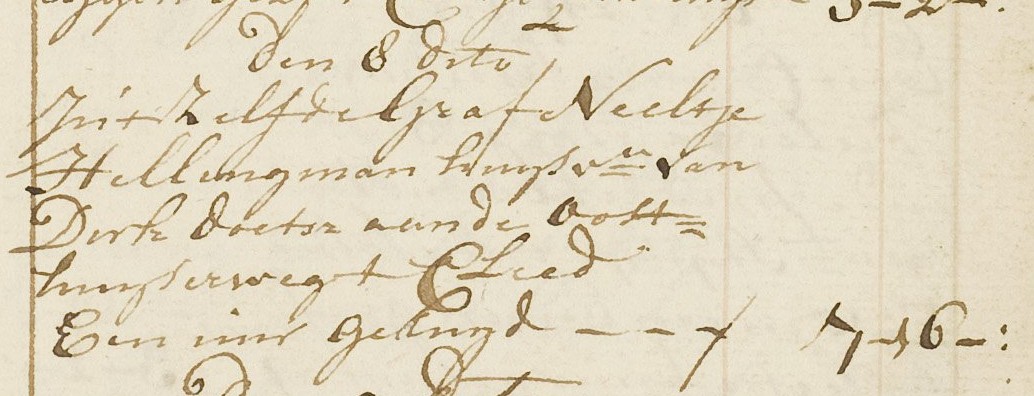 3-2-:
den 8 dito
Int Zelfde Graf Neeltje
Hellingman huysvr van
Dirk Doetsz aande Oost=
huyserwegt Cleed
Een uur geluyd - - - f 7-16-: